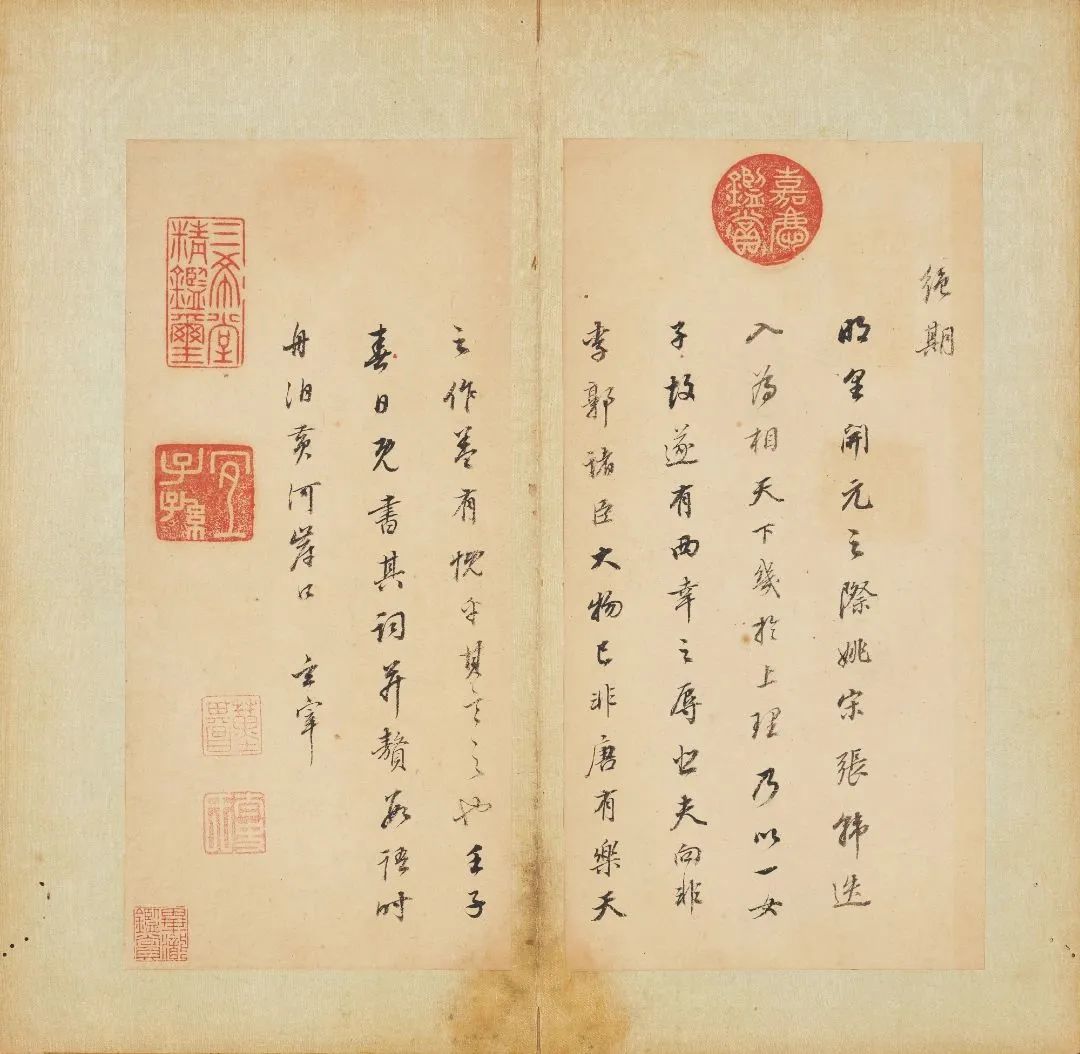 絕期
明皇開元之際姚宋張韓迭
入為相天下幾於上理乃以一女
子故遂有西幸之辱 夫向非
李郭諸臣大物已非唐有樂天
之作蓋有慨乎其言之也壬子
春日既書其詞并贅數語時
舟泊黃河崖口 玄宰
嘉慶鑑賞
三希堂精鑑璽
宜子孫
畢瀧鑑賞